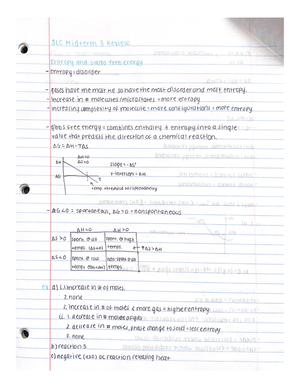 SLC Midterm 3 Review
Entropy and Gibbs free energy
- entropy: disorder
- gases have the most KE so have the most disorder and most entropy.
- increase in # molecules/microstates = more entropy
- increasing complexity of molecule = more configurations = more entropy
- gibbs free energy = combines enthalpy & entropy into a single
value that predicts the direction of a chemical reaction.
ΔG = ΔH - TΔS
slope = -ΔS
y-intercept = ΔH
temp. threshold for spontaneity
- ΔG<0 = spontaneous, ΔG>0 = nonspontaneous
ΔH<0 ΔH>0
ΔS>0 spont. @ all temps. spont. @ high temps.
ΔS<0 spont. @ low temps non-spont @ all temps.
TΔS>ΔH
ex. a) i. 1. increase in # of moles.
2. none
3. increase in # of moles & more gas = higher entropy.
ii. 1. decrease in # moles of gas
2. decrease in # moles, phase change to solid = less entropy
3. none
b) reaction 3
c) negative (exo) bc reaction releasing heat